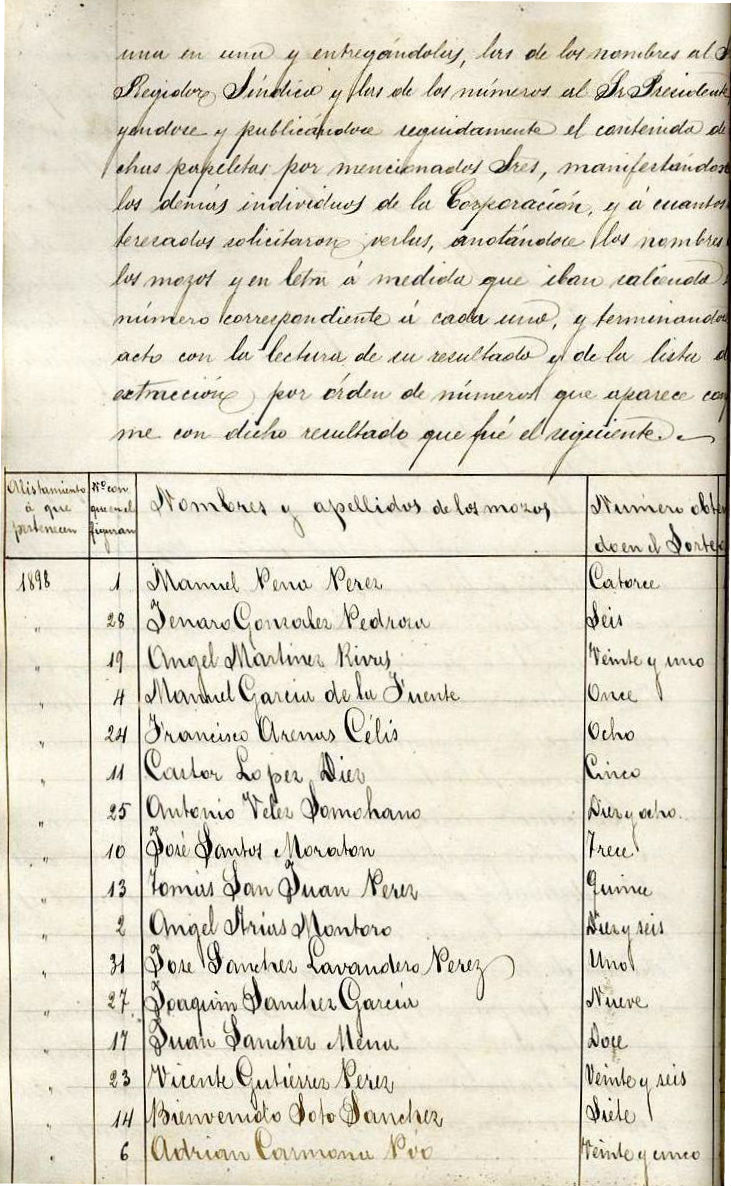 una en una y entregándolas, las de los nombres al S
Regidor Síndico y las de los números al Sr. Presidente,
yendose y publicándoce seguidamente el contenido de
chas papeletas por mencionados Sres, manifestándose
los demás individuos de la Corporación, y á cuantos
teresados solicitaron verlas, anotándoce los nombres
los mozos y en letra á medida que iban saliendo
número correspondiente á cada uno, y terminandose
acto con la lectura de su resultado y de la lista d
extracción por órden de números que aparece con
me con dicho resultado que fué el siguiente.
Alistamiento á que pertenecen | Nº con que en el figuran | Nombres y apellidos de los mozos | Número obten do en el Sorteo
1898 | 1 | Manuel Pena Perez | Catorce
" | 28 | Jenaro Gonzalez Pedrosa | Seis
" | 19 | Angel Martinez Rivas | Veinte y uno
" | 4 | Manuel Garcia de la Fuente | Once
" | 24 | Francisco Arenas Célis | Ocho
" | 11 | Castor Lopez Diez | Cinco
" | 25 | Antonio Velez Somohano | Diez y ocho.
" | 10 | José Santos Moraton | Trece
" | 13 | Tomás San Juan Perez | Quince
" | 2 | Angel Arias Montoro | Diez y seis
" | 31 | Jose Sanchez Lavandero Perez | Uno
" | 27 | Joaquin Sanchez García | Nueve
" | 17 | Juan Sanchez Mena | Doce
" | 23 | Vicente Gutiérrez Perez | Veinte y seis
" | 14 | Bienvenido Soto Sanchez | Siete
" | 6 | Adrian Carmona Póo | Veinte y cinco